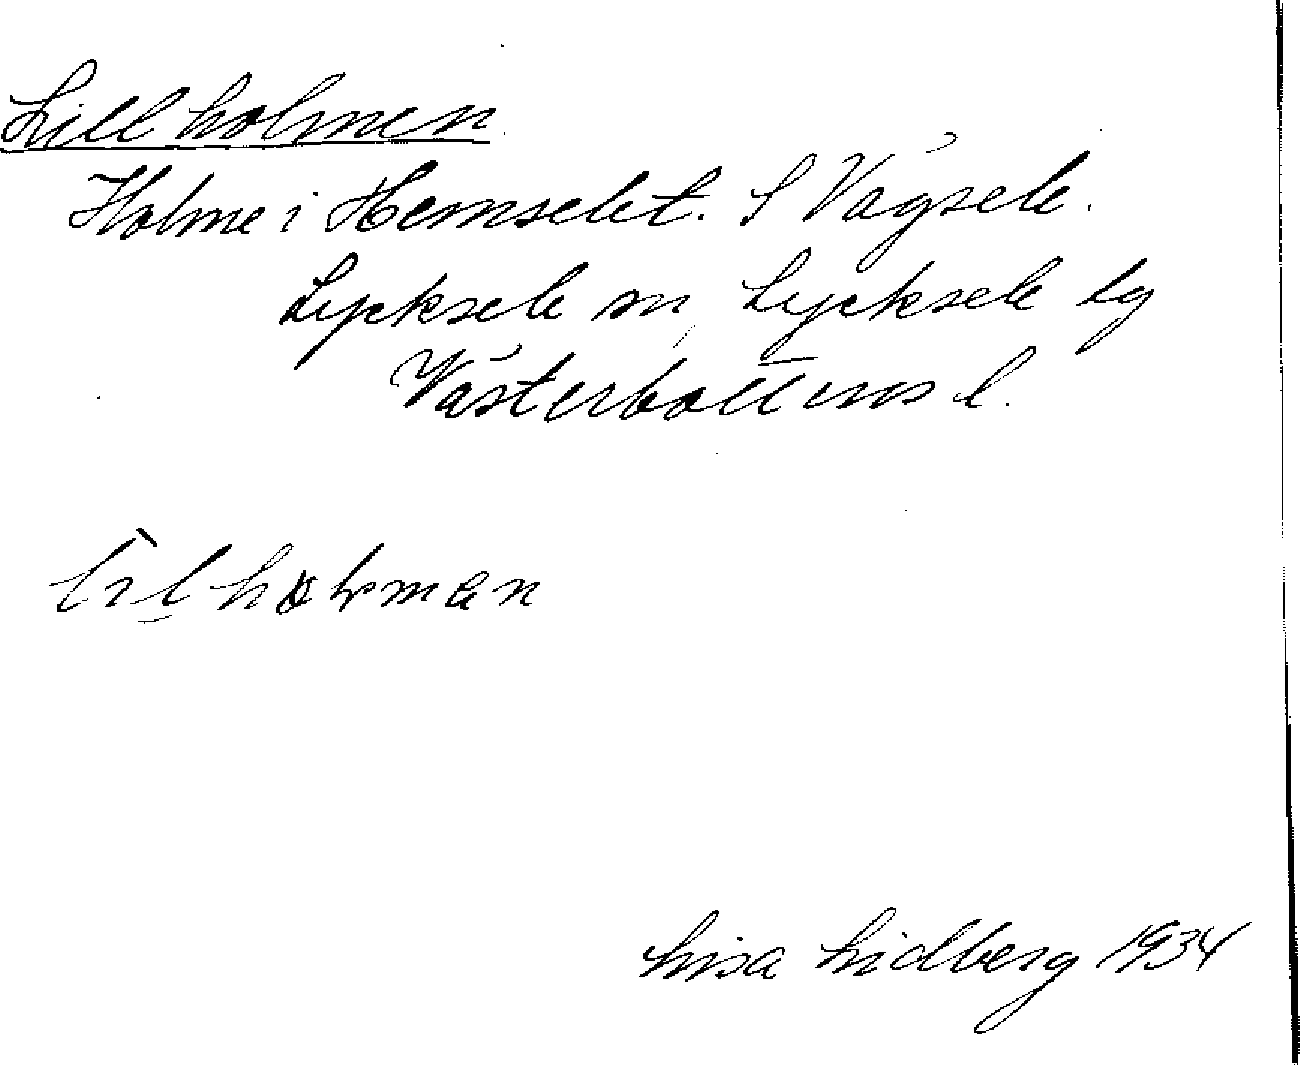 Lillholmen
Holme i Hemselet. S Vägsele.
Lycksele sn, Lycksele lg
Västerbottens l.
Lisa Lidberg 1934